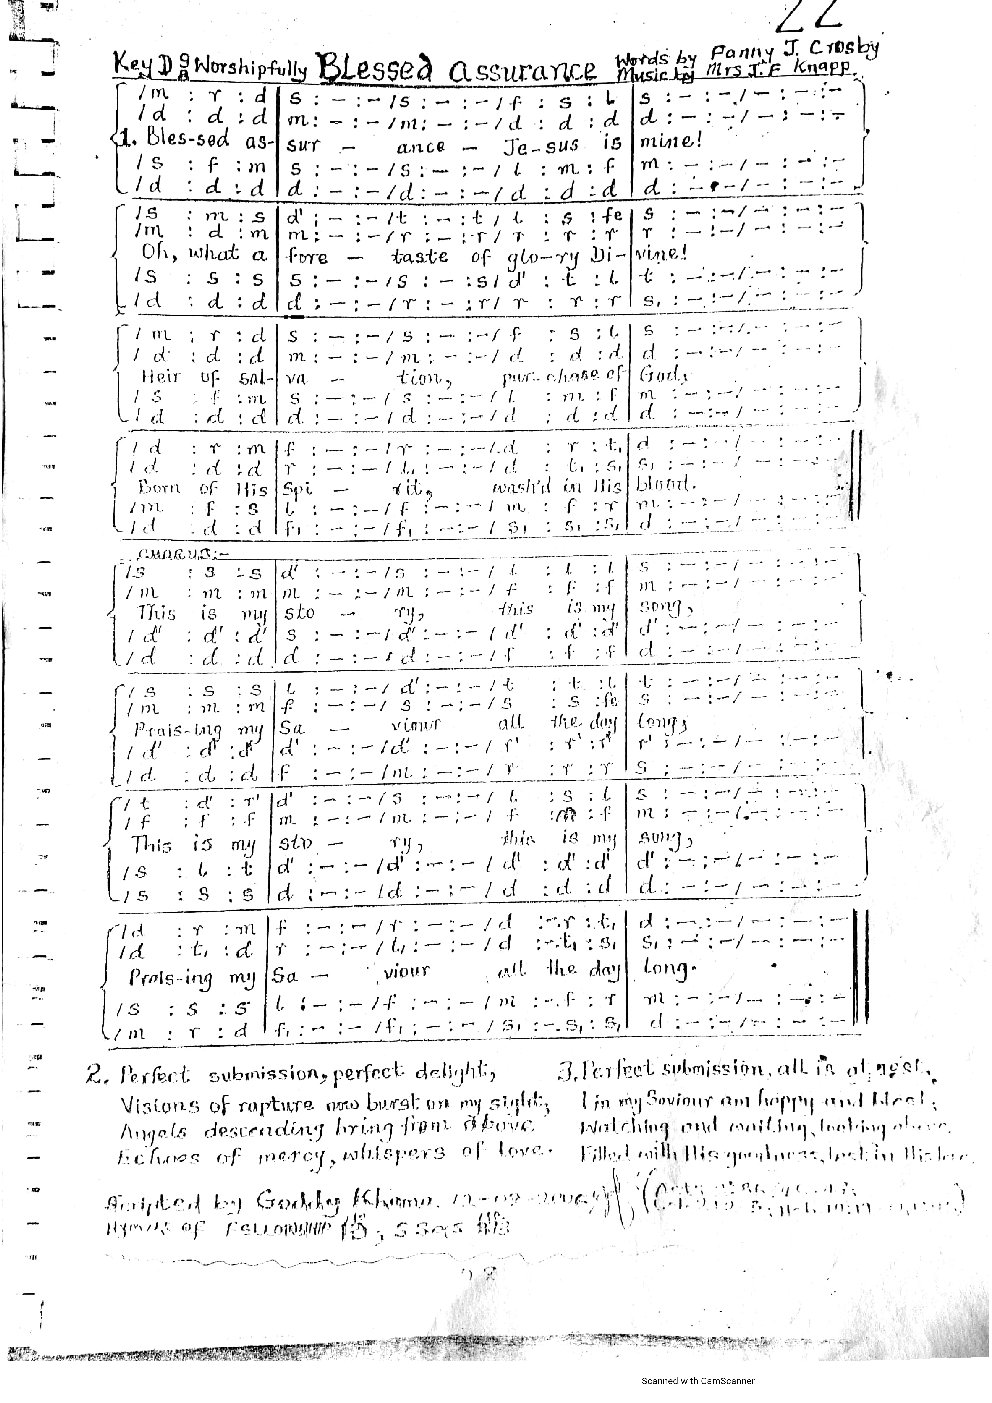 22
Key D 9/8 Worshipfully Blessed assurance Words by Fanny J. Crosby
Music by Mrs J. F Knapp.
/m : r : d | s : – : – /s : – : – /f : s : l | s : – : – / – : – : –
/d : d : d | m : – : – /m : – : – /d : d : d | d : – : – / – : – : –
1. Bles-sed as- sur – ance – Je-sus is mine!
/s : f : m | s : – : – /s : – : – / l : m : f | m : – : – / – : – : –
/d : d : d | d : – : – /d : – : – / d : d : d | d : – : – / – : – : –
/s : m : s | d' : – : – /t : – : t / l : s : fe | s : – : – / – : – : –
/m : d : m | m : – : – /r : – : r / r : r : r | r : – : – / – : – : –
Oh, what a fore – taste of glo-ry Di-vine!
/s : s : s | s : – : – /s : – : s / d' : t : l | t : – : – / – : – : –
/d : d : d | d : – : – / r : – : r / r : r : r | s, : – : – / – : – : –
/m : r : d | s : – : – / s : – : – / f : s : l | s : – : – / – : – : –
/d : d : d | m : – : – / m : – : – / d : d : d | d : – : – / – : – : –
Heir of sal- va – tion, pur-chase of God,
/s : f : m | s : – : – / s : – : – / l : m : f | m : – : – / – : – : –
/d : d : d | d : – : – / d : – : – / d : d : d | d : – : – / – : – : –
/d : r : m | f : – : – / r : – : – / d : r : t, | d : – : – / – : – : –
/d : d : d | r : – : – / l, : – : – / d : t, : s, | s, : – : – / – : – : –
Born of His Spi – rit, wash'd in His blood.
/m : f : s | l : – : – / f : – : – / m : f : r | m : – : – / – : – : –
/d : d : d | f, : – : – / f, : – : – / s, : s, : s, | d : – : – / – : – : –
CHORUS:-
/s : s : s | d' : – : – / s : – : – / l : l : l | s : – : – / – : – : –
/m : m : m | m : – : – / m : – : – / f : f : f | m : – : – / – : – : –
This is my sto – ry, this is my song,
/d' : d' : d' | s : – : – / d' : – : – / d' : d' : d' | d' : – : – / – : – : –
/d : d : d | d : – : – / d : – : – / f : f : f | d : – : – / – : – : –
/s : s : s | l : – : – / d' : – : – / t : t : l | t : – : – / – : – : –
/m : m : m | f : – : – / s : – : – / s : s : fe | s : – : – / – : – : –
Prais-ing my Sa – viour all the day long;
/d' : d' : d' | d' : – : – /d' : – : – / r' : r' : r' | r' : – : – / – : – : –
/d : d : d | f : – : – /m : – : – / r : r : r | s : – : – / – : – : –
/t : d' : r' | d' : – : – / s : – : – / l : s : l | s : – : – / – : – : –
/f : f : f | m : – : – / m : – : – / f : m : f | m : – : – / – : – : –
This is my sto – ry, this is my song,
/s : l : t | d' : – : – /d' : – : – / d' : d' : d' | d' : – : – / – : – : –
/s : s : s | d : – : – /d : – : – / d : d : d | d : – : – / – : – : –
/d : r : m | f : – : – / r : – : – / d : – r : t, | d : – : – / – : – : –
/d : t, : d | r : – : – / l, : – : – / d : – t, : s, | s, : – : – / – : – : –
Prais-ing my Sa – viour all the day long.
/s : s : s | l : – : – / f : – : – / m : – f : r | m : – : – / – : – : –
/m : r : d | f, : – : – / f, : – : – / s, : – s, : s, | d : – : – / – : – : –
2. Perfect submission, perfect delight,
Visions of rapture now burst on my sight;
Angels descending bring from above
Echoes of mercy, whispers of love.
3. Perfect submission, all is at rest,
I in my Saviour am happy and blest;
Watching and waiting, looking above,
Filled with His goodness, lost in His love.
Scripted by Goddy
HYMNS OF FELLOWSHIP
Scanned with CamScanner